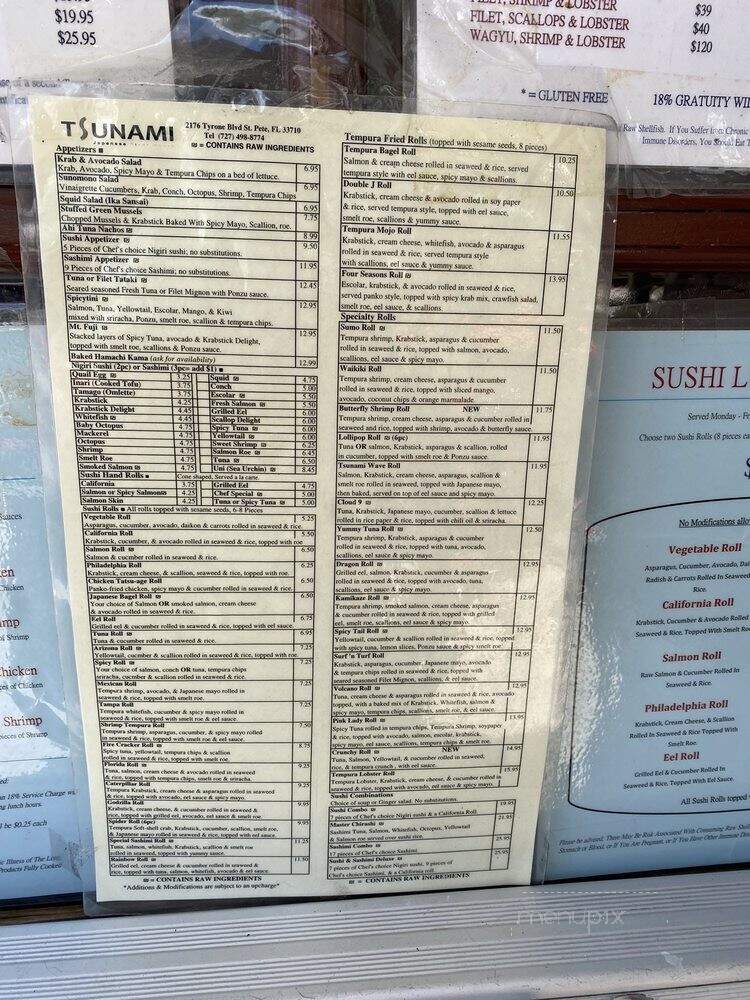 $19.95
$25.95
FILET, SHRIMP & LOBSTER $39
FILET, SCALLOPS & LOBSTER $40
WAGYU, SHRIMP & LOBSTER $120
* = GLUTEN FREE 18% GRATUITY
Raw Shellfish. If You Suffer from Chronic
Immune Disorders, You Should Eat
TSUNAMI
Japanese
2176 Tyrone Blvd St. Pete, FL 33710
Tel (727) 498-8774
= CONTAINS RAW INGREDIENTS
Appetizers
Krab & Avocado Salad 6.95
Krab, Avocado, Spicy Mayo & Tempura Chips on a bed of lettuce.
Sunomono Salad 6.95
Vinaigrette Cucumbers, Krab, Conch, Octopus, Shrimp, Tempura Chips
Squid Salad (Ika Sansai) 6.95
Stuffed Green Mussels 7.75
Chopped Mussels & Krabstick Baked With Spicy Mayo, Scallion, roe.
Ahi Tuna Nachos 8.99
Sushi Appetizer 9.50
5 Pieces of Chef's choice Nigiri sushi; no substitutions.
Sashimi Appetizer 11.95
9 Pieces of Chef's choice Sashimi; no substitutions.
Tuna or Filet Tataki 12.45
Seared seasoned Fresh Tuna or Filet Mignon with Ponzu sauce.
Spicytini 12.95
Salmon, Tuna, Yellowtail, Escolar, Mango, & Kiwi
mixed with sriracha, Ponzu, smelt roe, scallion & tempura chips.
Mt. Fuji 12.95
Stacked layers of Spicy Tuna, avocado & Krabstick Delight,
topped with smelt roe, scallions & Ponzu sauce.
Baked Hamachi Kama (ask for availability) 12.99
Nigiri Sushi (2pc) or Sashimi (3pc= add $1)
Quail Egg 3.25 Squid 4.75
Inari (Cooked Tofu) 3.75 Conch 5.00
Tamago (Omlette) 3.75 Escolar 5.50
Krabstick 4.25 Fresh Salmon 5.50
Krabstick Delight 4.45 Grilled Eel 6.00
Whitefish 4.45 Scallop Delight 6.00
Baby Octopus 4.75 Spicy Tuna 6.00
Mackerel 4.75 Yellowtail 6.00
Octopus 4.75 Sweet Shrimp 6.25
Shrimp 4.75 Salmon Roe 6.45
Smelt Roe 4.75 Tuna 6.50
Smoked Salmon 4.75 Uni (Sea Urchin) 8.45
Sushi Hand Rolls Cone shaped, Served a la carte.
California 3.75 Grilled Eel 4.75
Salmon or Spicy Salmon 4.25 Chef Special 5.00
Salmon Skin 4.25 Tuna or Spicy Tuna 5.00
Sushi Rolls All rolls topped with sesame seeds, 6-8 Pieces
Vegetable Roll 5.25
Asparagus, cucumber, avocado, daikon & carrots rolled in seaweed & rice.
California Roll 5.50
Krabstick, cucumber, & avocado rolled in seaweed & rice, topped with roe
Salmon Roll 6.50
Salmon & cucumber rolled in seaweed & rice.
Philadelphia Roll 6.25
Krabstick, cream cheese, & scallion, seaweed & rice, topped with roe.
Chicken Tatsu-age Roll 6.50
Panko-fried chicken, spicy mayo & cucumber rolled in seaweed & rice.
Japanese Bagel Roll 6.50
Your choice of Salmon OR smoked salmon, cream cheese
& avocado rolled in seaweed & rice.
Eel Roll 6.75
Grilled eel & cucumber rolled in seaweed & rice, topped with eel sauce.
Tuna Roll 6.95
Tuna & cucumber rolled in seaweed & rice.
Arizona Roll 7.25
Yellowtail, cucmber & scallion rolled in seaweed & rice, topped with roe.
Spicy Roll 7.25
Your choice of salmon, conch OR tuna, tempura chips
sriracha, cucmber & scallion rolled in seaweed & rice.
Mexican Roll 7.25
Tempura shrimp, avocado, & Japanese mayo rolled in
seaweed & rice, topped with smelt roe.
Tampa Roll 7.25
Tempura whitefish, cucumber & spicy mayo rolled in
seaweed & rice, topped with smelt roe & eel sauce.
Shrimp Tempura Roll 7.50
Tempura shrimp, asparagus, cucumber, & spicy mayo rolled
in seaweed & rice, topped with smelt roe.
Fire Cracker Roll 8.75
Spicy tuna, yellowtail, tempura chips & scallion
rolled in seaweed & rice, topped with smelt roe.
Florida Roll 9.25
Tuna, salmon, cream cheese & avocado rolled in seaweed
& rice, topped with tempura chips, smelt roe & sriracha.
Caterpillar Roll 9.25
Tempura Krabstick, cream cheese & asparagus rolled in seaweed
& rice, topped with avocado, eel sauce & spicy mayo.
Godzilla Roll 9.95
Krabstick, cream cheese, & cucumber rolled in seaweed &
rice, topped with grilled eel, avocado, eel sauce & smelt roe.
Spider Roll (6pc) 9.95
Tempura Soft-shell crab, Krabstick, cucumber, scallion, smelt roe,
& Japanese mayo rolled in seaweed & rice, topped with eel sauce.
Special Sashimi Roll 11.25
Tuna, salmon, whitefish, Krabstick, scallion & smelt roe
rolled in seaweed, topped with yummy sauce.
Rainbow Roll 11.50
Grilled eel, cream cheese & cucumber rolled in seaweed &
rice, topped with tuna, salmon, whitefish, avocado & eel sauce.
= CONTAINS RAW INGREDIENTS
*Additions & Modifications are subject to an upcharge*
Tempura Fried Rolls (topped with sesame seeds, 8 pieces)
Tempura Bagel Roll 10.25
Salmon & cream cheese rolled in seaweed & rice, served
tempura style with eel sauce, spicy mayo & scallions.
Double J Roll 10.50
Krabstick, cream cheese & avocado rolled in soy paper
& rice, served tempura style, topped with eel sauce,
smelt roe, scallions & yummy sauce.
Tempura Mojo Roll 11.55
Krabstick, cream cheese, whitefish, avocado & asparagus
rolled in seaweed & rice, served tempura style
with scallions, eel sauce & yummy sauce.
Four Seasons Roll 13.95
Escolar, krabstick, & avocado rolled in seaweed & rice,
served panko style, topped with spicy krab mix, crawfish salad,
smelt roe, scallions, eel sauce & yummy sauce.
Specialty Rolls
Sumo Roll 11.50
Tempura shrimp, Krabstick, asparagus & cucumber
rolled in seaweed & rice, topped with salmon, avocado,
scallions, eel sauce & spicy mayo.
Waikiki Roll 11.50
Tempura shrimp, cream cheese, asparagus & cucumber
rolled in seaweed & rice, topped with sliced mango,
avocado, coconut chips & orange marmalade.
Butterfly Shrimp Roll NEW 11.75
Tempura shrimp, cream cheese, asparagus & cucumber rolled in
seaweed and rice, topped with shrimp, avocado & butterfly sauce.
Lollipop Roll (6pc) 11.95
Tuna OR salmon, Krabstick, asparagus & scallion, rolled
in cucumber, topped with smelt roe & Ponzu sauce.
Tsunami Wave Roll 11.95
Salmon, Krabstick, cream cheese, asparagus, scallion &
smelt roe rolled in seaweed, topped with Japanese mayo,
then baked, served on top of eel sauce and spicy mayo.
Cloud 9 12.25
Tuna, Krabstick, Japanese mayo, cucumber, scallion & lettuce
rolled in rice paper & rice, topped with chili oil & sriracha.
Yummy Tuna Roll 12.50
Tempura shrimp, Krabstick, asparagus & cucumber
rolled in seaweed & rice, topped with tuna, avocado,
scallions, eel sauce & spicy mayo.
Dragon Roll 12.95
Grilled eel, salmon, Krabstick, cucumber & asparagus
rolled in seaweed & rice, topped with avocado, tuna,
scallions, eel sauce & spicy mayo.
Kamikaze Roll 12.95
Tempura shrimp, smoked salmon, cream cheese, asparagus
& cucumber rolled in seaweed & rice, topped with grilled
eel, smelt roe, scallions, eel sauce & spicy mayo.
Spicy Tail Roll 12.95
Yellowtail, cucumber & scallion rolled in seaweed & rice, topped
with spicy tuna, lemon slices, Ponzu sauce & spicy smelt roe.
Surf'n Turf Roll 12.95
Krabstick, asparagus, cucumber, Japanese mayo, avocado
& tempura chips rolled in seaweed & rice, topped with
seared seasoned Filet Mignon, scallions, & eel sauce.
Volcano Roll 12.95
Tuna, cream cheese & asparagus rolled in seaweed & rice, avocado
topped, with a baked mix of Krabstick, Whitefish, salmon &
spicy mayo, tempura chips, scallions, smelt roe, & eel sauce.
Pink Lady Roll 13.95
Spicy Tuna rolled in tempura chips, Tempura Shrimp, soypaper
& rice, topped with avocado, salmon, escolar, krabstick,
spicy mayo, eel sauce, scallions, tempura chips & smelt roe.
Crunchy Roll NEW 14.95
Tuna, Salmon, Yellowtail, & cucumber rolled in seaweed,
rice, & tempura crunch, with eel sauce.
Tempura Lobster Roll 15.95
Tempura Lobster, Krabstick, cream cheese, & cucumber rolled in
seaweed & rice, topped with avocado, eel sauce & spicy mayo.
Sushi Combinations
Choice of soup or Ginger salad. No substitutions.
Sushi Combo 19.95
7 pieces of Chef's choice Nigiri sushi & a California Roll.
Master Chirashi 21.95
Sashimi Tuna, Salmon, Whitefish, Octopus, Yellowtail
& Salmon roe served over sushi rice.
Sashimi Combo 25.95
17 pieces of Chef's choice Sashimi.
Sushi & Sashimi Deluxe 25.95
7 pieces of Chef's choice Nigiri sushi, 9 pieces of
Chef's choice Sashimi, & a California roll.
= CONTAINS RAW INGREDIENTS
SUSHI L
Served Monday - Fr
Choose two Sushi Rolls (8 pieces ea
$
No Modifications allo
Vegetable Roll
Asparagus, Cucumber, Avocado, Dai
Radish & Carrots Rolled In Seaweed
Rice.
California Roll
Krabstick, Cucumber & Avocado Rolled
Seaweed & Rice, Topped With Smelt Roe
Salmon Roll
Raw Salmon & Cucumber Rolled In
Seaweed & Rice.
Philadelphia Roll
Krabstick, Cream Cheese, & Scallion
Rolled In Seaweed & Rice Topped With
Smelt Roe.
Eel Roll
Grilled Eel & Cucumber Rolled In
Seaweed & Rice, Topped With Eel Sauce.
All Sushi Rolls topped
Sauces
Chicken
of Shrimp
hicken
es of Chicken
Shrimp
pieces of Shrimp
an 18% Service Charge
ng lunch hours.
l be $0.25 each
Products Fully Cooked
menupix